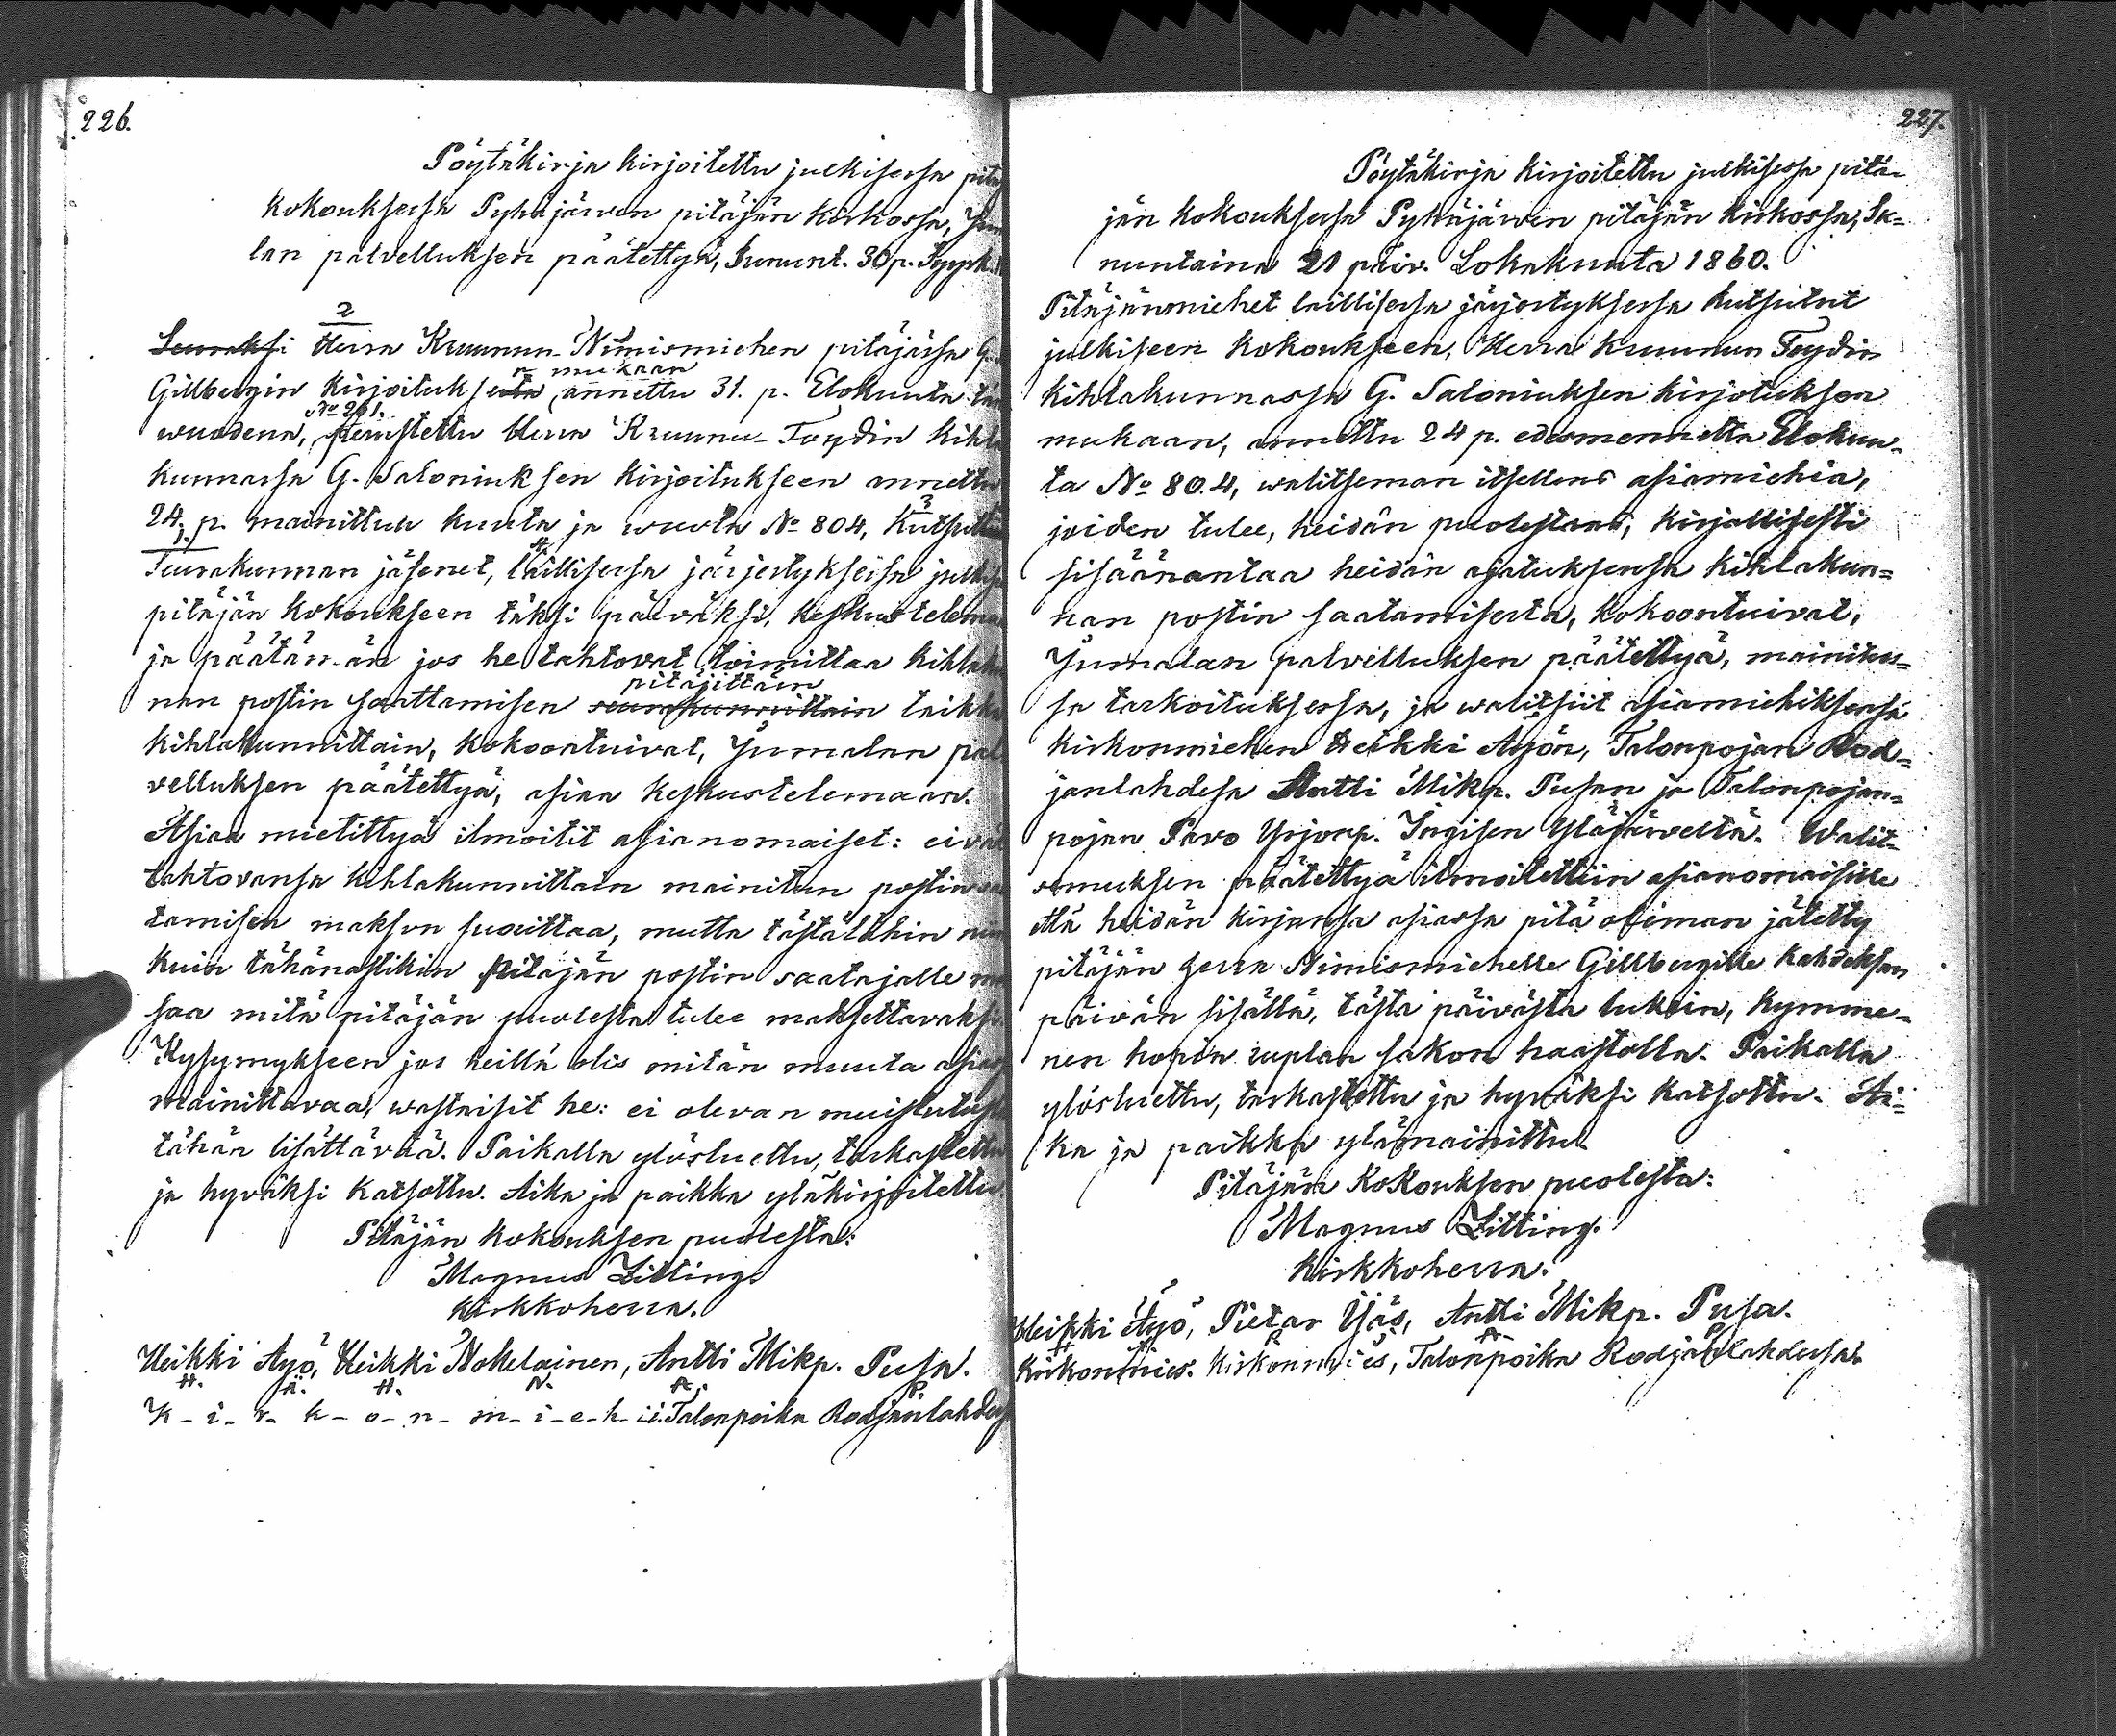 226.
Pöytäkirja kirjoitettu julkisessa pitä
kokouksessa Pyhäjärven pitäjän kirkossa, Jum
lan palvelluksen päätettyä, Sununt. 30 p. Syysk.
2
Seuraksi Herra Kruunun Nimismiehen pitäjässä G.
n mukaan
Gillbergin kirjoituksesta, annettu 31. p. Elokuuta tän
No 261.
wuodena, perustettu Herra Kruunu-Foydin kihla
kunnassa G. Saloniuksen kirjoitukseen annettu
24. p. mainittua kuuta ja wuotta No 804, Kutsuttu
1.
Seurakunnan jäsenet, laillisessa järjestyksessä julkise
pitäjän kokoukseen täksi päiväksi, keskustelema
ja päätämän jos he tahtovat toimittaa kihlaku
pitäjittäin
nan postin saattamisen seurakunnittain taikka
kihlakunnittain, kokoontuivat, Jumalan pal
velluksen päätettyä, asiaa keskustelemaan.
Asiaa mietittyä ilmoitit asianomaiset: eivät
tahtovansa kihlakunnittain mainitun postin saa
tamisen makson suorittaa, mutta tästälähin niin
kuin tähänastikin pitäjän postin saatajalle ma
saa mitä pitäjän puolesta tulee maksettavaksi.
Kysymykseen jos heillä olis mitän muuta asias
mainittavaa, wastaisit he: ei olevan muistutusta
tähän lisättävää. Paikalla ylösluettu, tarkastettu
ja hyväksi katsottu. Aika ja paikka yläkirjoitettu
Pitäjän kokouksen puolesta:
Magnus Litting.
kirkkoherra.
Heikki Äyö, Heikki Nokelainen, Antti Mikp. Pusa.
H. Ä. H. N. A. P.
K-i-r-k-o-n-m-i-e-h-iä. Talonpoika Rodjanlahdes
227.
Pöytäkirja kirjoitettu julkisessa pitä-
jän kokouksessa Pyhäjärwen pitäjän kirkossa, Su=
nuntaina 21 päiv. Lokakuuta 1860.
Pitäjänmiehet laillisessa järjestyksessä kutsutut
julkiseen kokoukseen, Herra kruunun Foydin
kihlakunnassa G. Saloniuksen kirjotuksen
mukaan, annettu 24 p. edesmennettä Elokuu-
ta No 804, walitseman itsellens asiamiehiä,
joiden tulee, heidän puolestans, kirjallisesti
sisäänantaa heidän ajatuksensa kihlakun=
nan postin saatamisesta, kokoontuivat,
Jumalan palvelluksen päätettyä, mainitus=
sa tarkoituksessa, ja walitsiit asiamiehiksensä
kirkonmiehen Heikki Äyön, Talonpojan Rod=
janlahdesa Antti Mikp. Pusan ja Talonpojan=
pojan Pavo Yrjönp. Ingisen Yläjärveltä. Walit=
semuksen päätettyä ilmoitettiin asianomaisille
että heidän kirjansa asiassa pitä oleman jätetty
pitäjän herra Nimismiehelle Gillbergille kahdeksan
päivän sisällä, tästä päivästä lukein, kymme=
nen hopia ruplan sakon haastolla. Paikalla
ylösluettu, tarkastettu ja hyväksi katsottu. Ai=
ka ja paikka ylämainittu.
Pitäjän Kokouksen puolesta:
Magnus Litting.
Kirkkoherra.
Heikki Äyö, Pietar Yjäs, Antti Mikp. Pusa.
Kirkonmies. Kirkonmies, Talonpoika Rodjanlahdesa.